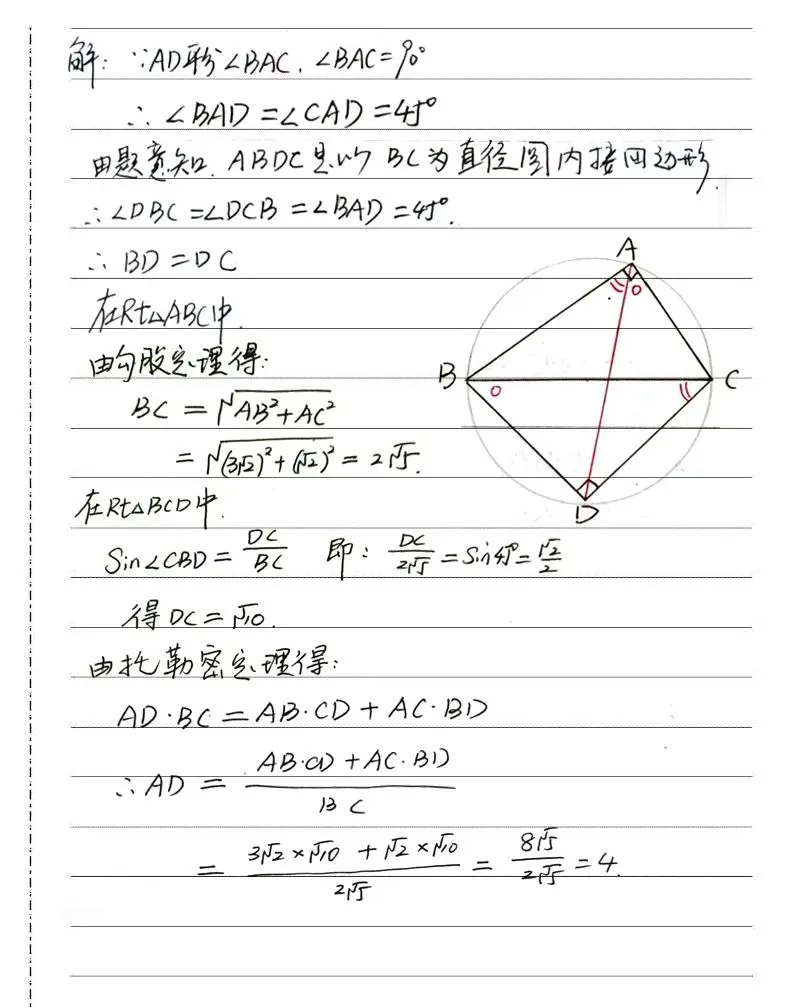 解: ∵AD平分∠BAC, ∠BAC=90°
∴ ∠BAD=∠CAD=45°
由题意知, ABDC是以BC为直径圆内接四边形,
∴∠DBC=∠DCB=∠BAD=45°.
∴ BD=DC
在Rt△ABC中,
由勾股定理得:
BC = √(AB²+AC²)
= √((3√2)²+(√2)²) = 2√5.
在Rt△BCD中,
Sin∠CBD = DC/BC 即: DC/2√5 = Sin45° = √2/2
得 DC = √10.
由托勒密定理得:
AD·BC = AB·CD + AC·BD
∴ AD = (AB·CD + AC·BD)/BC
= (3√2×√10 + √2×√10)/2√5 = 8√5/2√5 = 4.
A
B
C
D